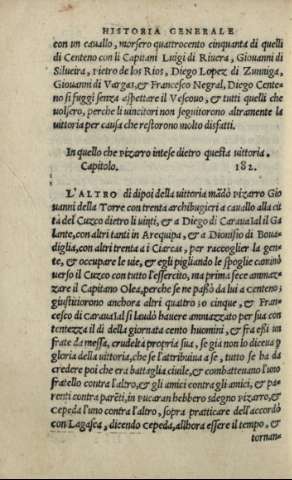 HISTORIA GENERALE
con un cauallo, morsero quattrocento cinquanta di quelli
di Centeno con li Capitani Luigi di Riuera, Giouanni di
Silueira, Pietro de los Rios, Diego Lopez di Zunniga,
Giouanni di Vargas, & Francesco Negral, Diego Cente=
no si fuggi senza aspettare il Vescouo, & tutti quelli che
volsero, perche li uincitori non seguitorono altramente la
uittoria per causa che restorono molto disfatti.
In quello che Pizarro intese dietro questa uittoria.
Capitolo. 182.
L'ALTRO di dipoi della uittoria mādò Pizarro Gio
uanni della Torre con trenta archibugieri a cauallo alla cit
tà del Cuzco dietro li uinti, & a Diego di Carauaial il Ga
lante, con altri tanti in Arequipa, & a Dionisio di Boua=
diglia, con altri trenta a i Ciarcas, per raccoglier la gen=
te, & occupare le uie, & egli pigliando le spoglie caminò
uerso il Cuzco con tutto l'essercito, ma prima fece ammaz=
zare il Capitano Olea, perche se ne passò da lui a Centeno;
giustitiorono anchora altri quattro ò cinque, & Fran=
cesco di Carauaial si laudò hauere ammazzato per sua con
tentezza il dì della giornata cento huomini, & fra essi un
frate da messa, crudeltà propria sua, se già non lo diceua p
gloria della uittoria, che se l'attribuiua a se, tutto se ha da
credere poi che era battaglia ciuile, & combatteuano l'uno
fratello contra l'altro, & gli amici contra gli amici, & pa=
renti contra parēti, in Pucaran hebbero sdegno Pizarro, &
Cepeda l'uno contra l'altro, sopra pratticare dell'accordo
con Lagasca, dicendo Cepeda, allhora essere il tempo, &
tornan=